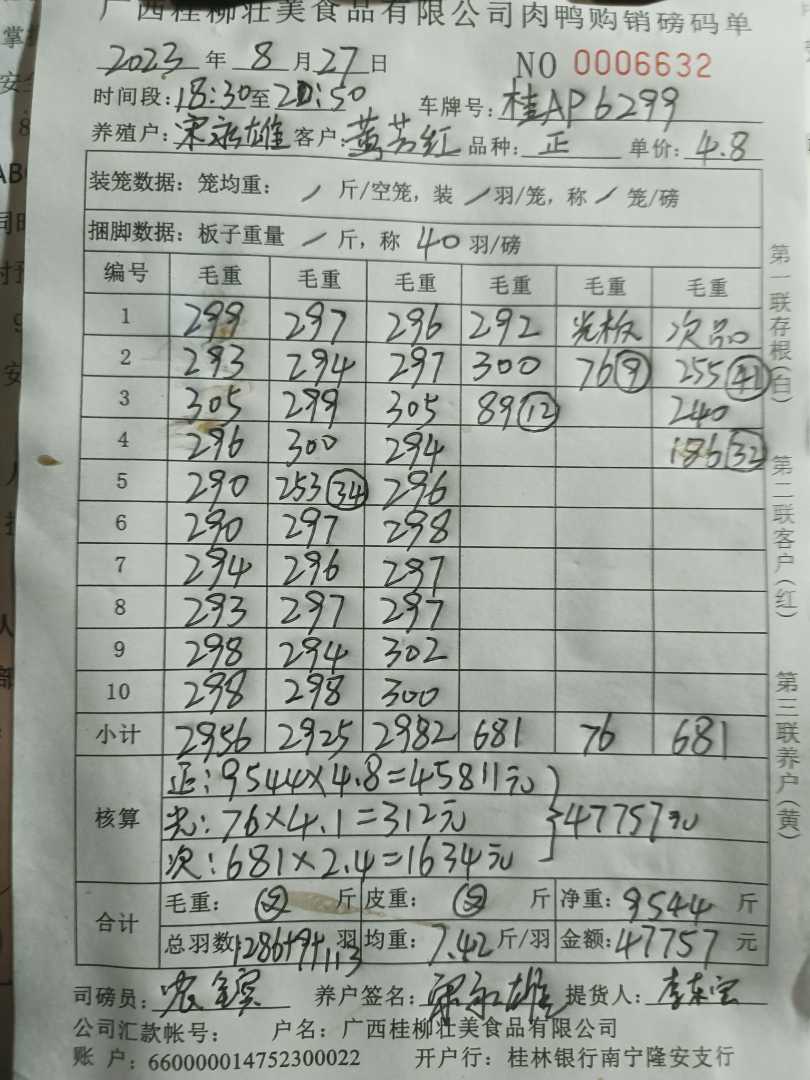 广西桂柳壮美食品有限公司肉鸭购销磅码单
2023 年 8 月 27 日 NO 0006632
时间段: 18:30 至 21:50 车牌号: 桂AP6299
养殖户: 宋永雄 客户: 黄芳红 品种: 正 单价: 4.8
装笼数据: 笼均重: / 斤/空笼, 装 / 羽/笼, 称 / 笼/磅
捆脚数据: 板子重量 / 斤, 称 40 羽/磅
编号 毛重 毛重 毛重 毛重 毛重 毛重
1 299 297 296 292 光板 次品
2 293 294 297 300 76 9 255 41
3 305 299 305 89 12 240
4 296 300 294 186 32
5 290 253 34 296
6 290 297 298
7 294 296 297
8 293 297 297
9 298 294 302
10 298 298 300
小计 2956 2925 2982 681 76 681
核算
正: 9544×4.8=45811元
光: 76×4.1=312元 }47757元
次: 681×2.4=1634元
合计
毛重: 斤 皮重: 斤 净重: 9544 斤
总羽数 1286+9+113 羽 均重: 7.42 斤/羽 金额: 47757 元
司磅员: 养户签名: 宋永雄 提货人:
公司汇款帐号: 户名: 广西桂柳壮美食品有限公司
账户: 660000014752300022 开户行: 桂林银行南宁隆安支行
第一联存根(白)
第二联客户(红)
第三联养户(黄)